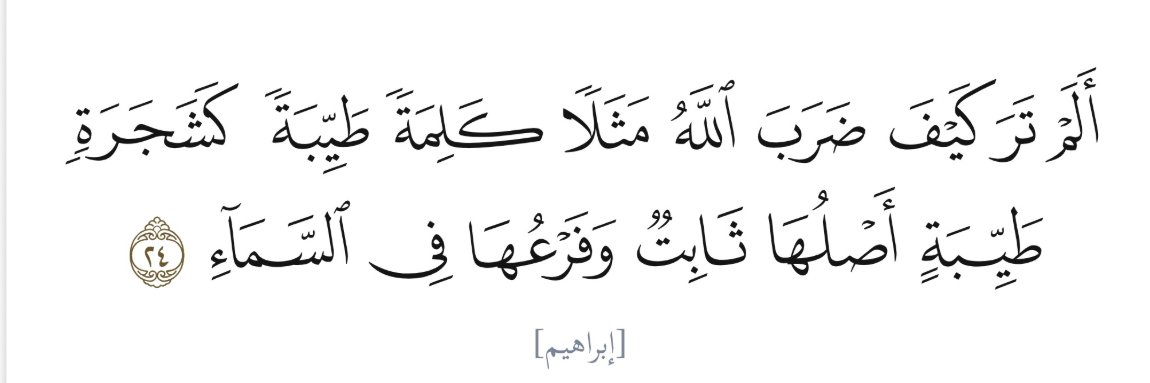 أَلَمۡ تَرَ كَيۡفَ ضَرَبَ ٱللَّهُ مَثَلٗا كَلِمَةٗ طَيِّبَةٗ كَشَجَرَةٖ
طَيِّبَةٍ أَصۡلُهَا ثَابِتٞ وَفَرۡعُهَا فِي ٱلسَّمَآءِ ٢٤
[إبراهيم]